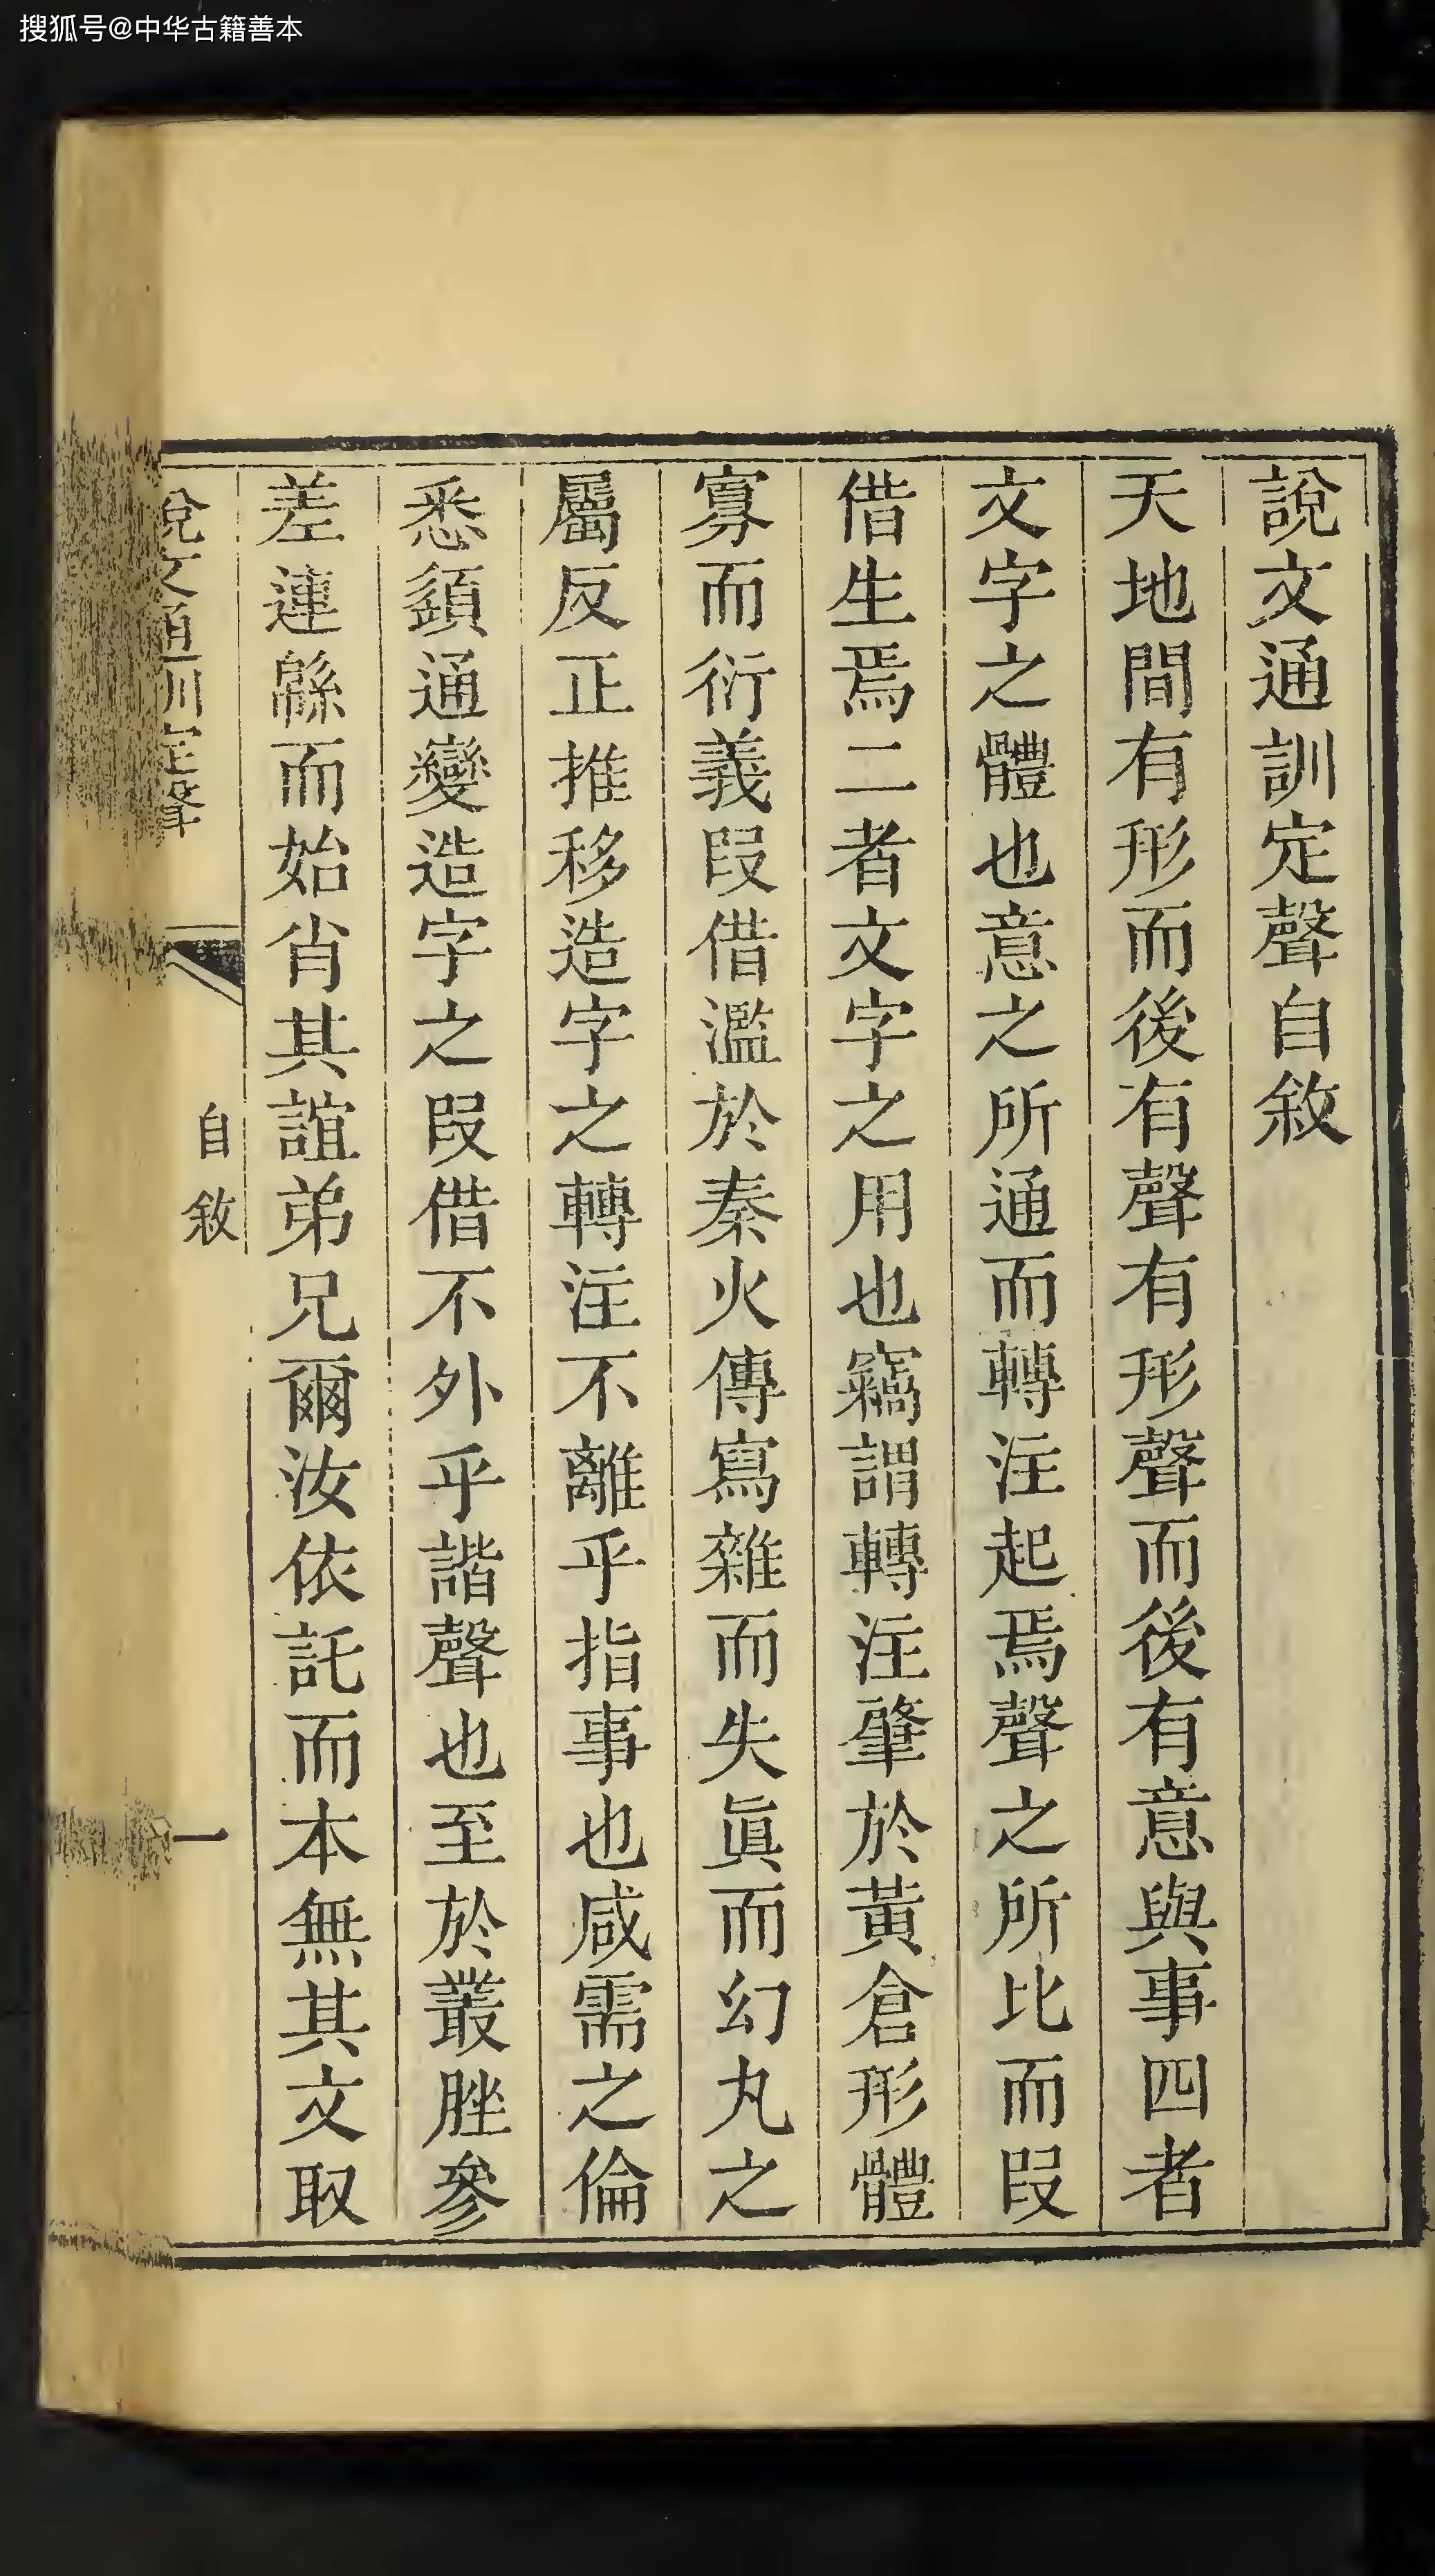 搜狐号@中华古籍善本
說文通訓定聲自敘
天地間有形而後有聲有形聲而後有意與事四者
文字之體也意之所通而轉注起焉聲之所比而叚
借生焉二者文字之用也竊謂轉注肇於黃倉形體
寡而衍義叚借濫於秦火傳寫雜而失眞而幻丸之
屬反正推移造字之轉注不離乎指事也咸需之倫
悉頾通變造字之叚借不外乎諧聲也至於叢脞參
差連緜而始肖其誼弟兄爾汝依託而本無其文取
說文通訓定聲
自敘
一